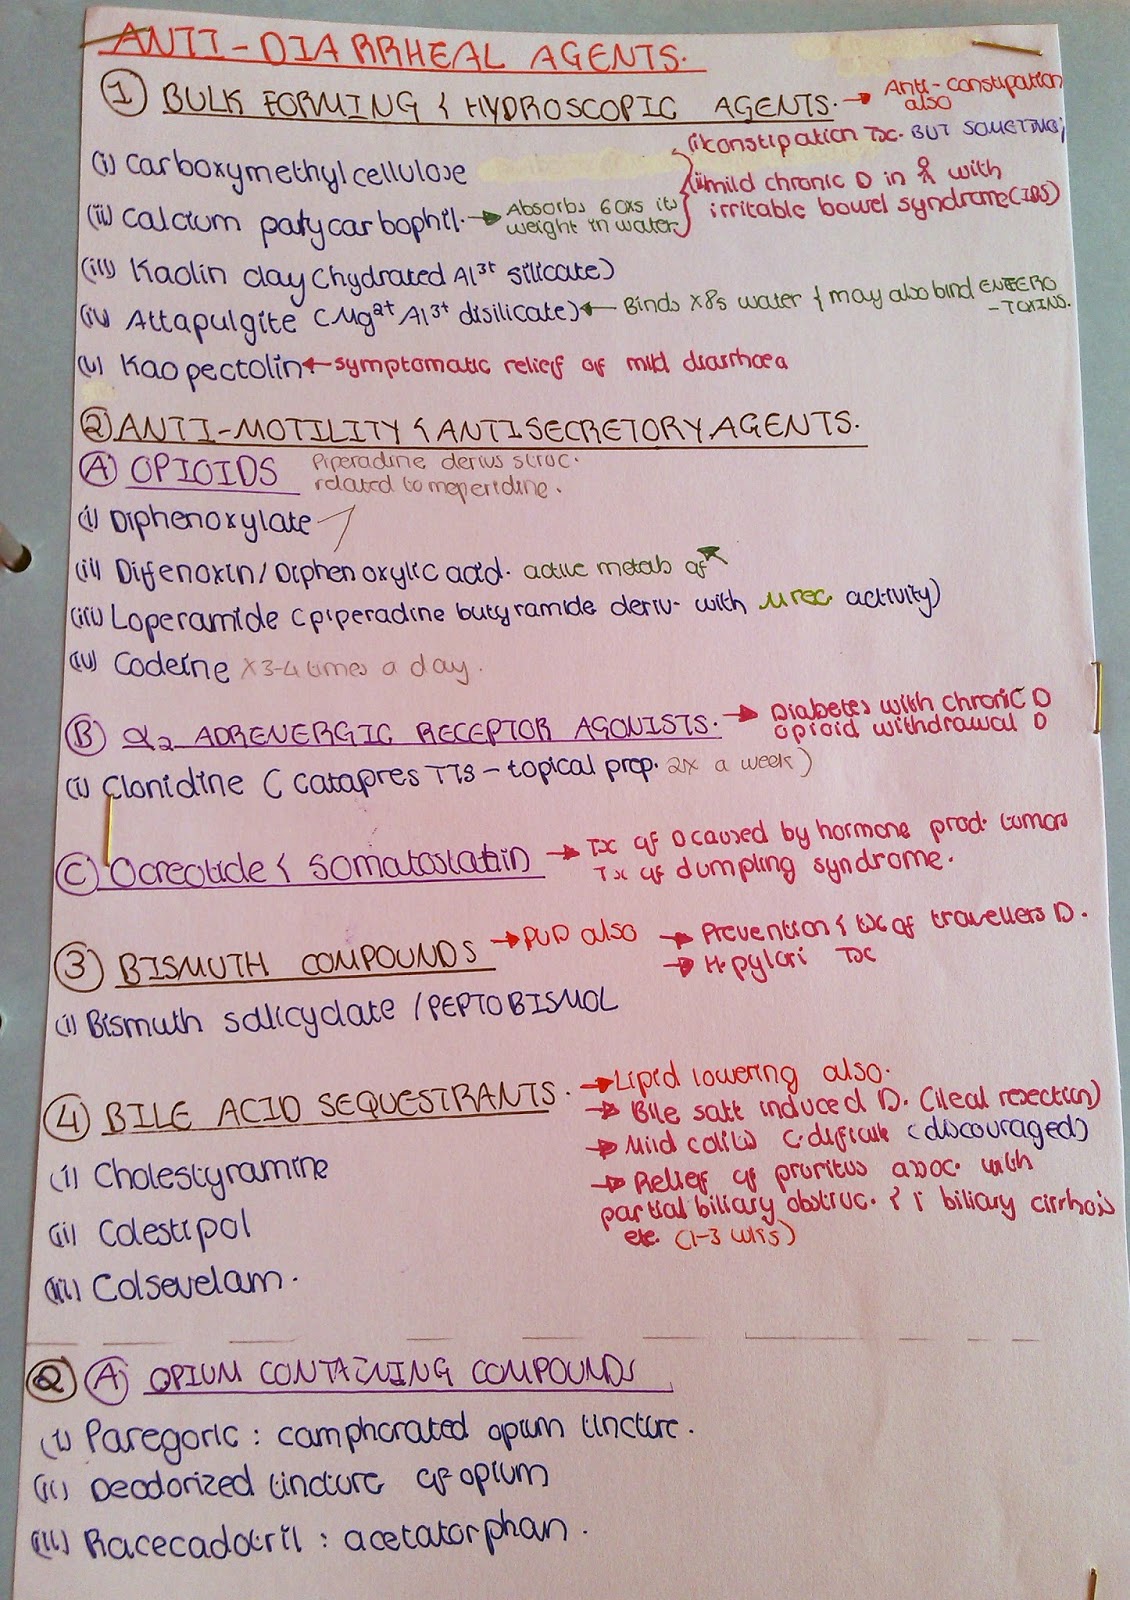 ANTI-DIARRHEAL AGENTS.
① BULK FORMING & HYDROSCOPIC AGENTS. → Anti-constipation
also
(i) Carboxymethylcellulose
(i) constipation Tx. BUT SOMETIMES;
(ii) mild chronic D in with
irritable bowel syndrome (IBS)
(ii) Calcium polycarbophil. → Absorbs 60xs its
weight in water
(iii) Kaolin clay (hydrated Al³⁺ silicate)
(iv) Attapulgite (Mg²⁺ Al³⁺ disilicate) ← Binds x8s water & may also bind ENTERO
-TOXINS.
(v) Kaopectolin ← symptomatic relief of mild diarrhoea
② ANTI-MOTILITY & ANTISECRETORY AGENTS.
Ⓐ OPIOIDS
Piperadine derivs struc.
related to meperidine.
(i) Diphenoxylate
(ii) Difenoxin/Diphenoxylic acid. active metab of
(iii) Loperamide (piperadine butyramide deriv- with μ rec. activity)
(iv) Codeine x3-4 times a day.
Ⓑ α₂ ADRENERGIC RECEPTOR AGONISTS. → Diabetes with chronic D
opioid withdrawal D
(i) Clonidine (catapres TTS - topical prep. 2x a week)
Ⓒ Ocreotide & Somatostatin → Tx of D caused by hormone prod. tumors
Tx of dumpling syndrome.
③ BISMUTH COMPOUNDS → PUD also
→ Prevention & tx of travellers D.
→ H. pylori Tx
(i) Bismuth salicyclate / PEPTOBISMOL
④ BILE ACID SEQUESTRANTS.
→ Lipid lowering also.
→ Bile salt induced D. (ileal resection)
→ Mild colitis C. difficile (discouraged)
→ Relief of pruritus assoc. with
partial biliary obstruc. & 1° biliary cirrhosis
etc. (1-3 wks)
(i) Cholestyramine
(ii) Colestipol
(iii) Colsevelam.
② Ⓐ OPIUM CONTAINING COMPOUNDS
(i) Paregoric : camphorated opium tincture.
(ii) Deodorized tincture of opium
(iii) Racecadotril : acetatorphan.